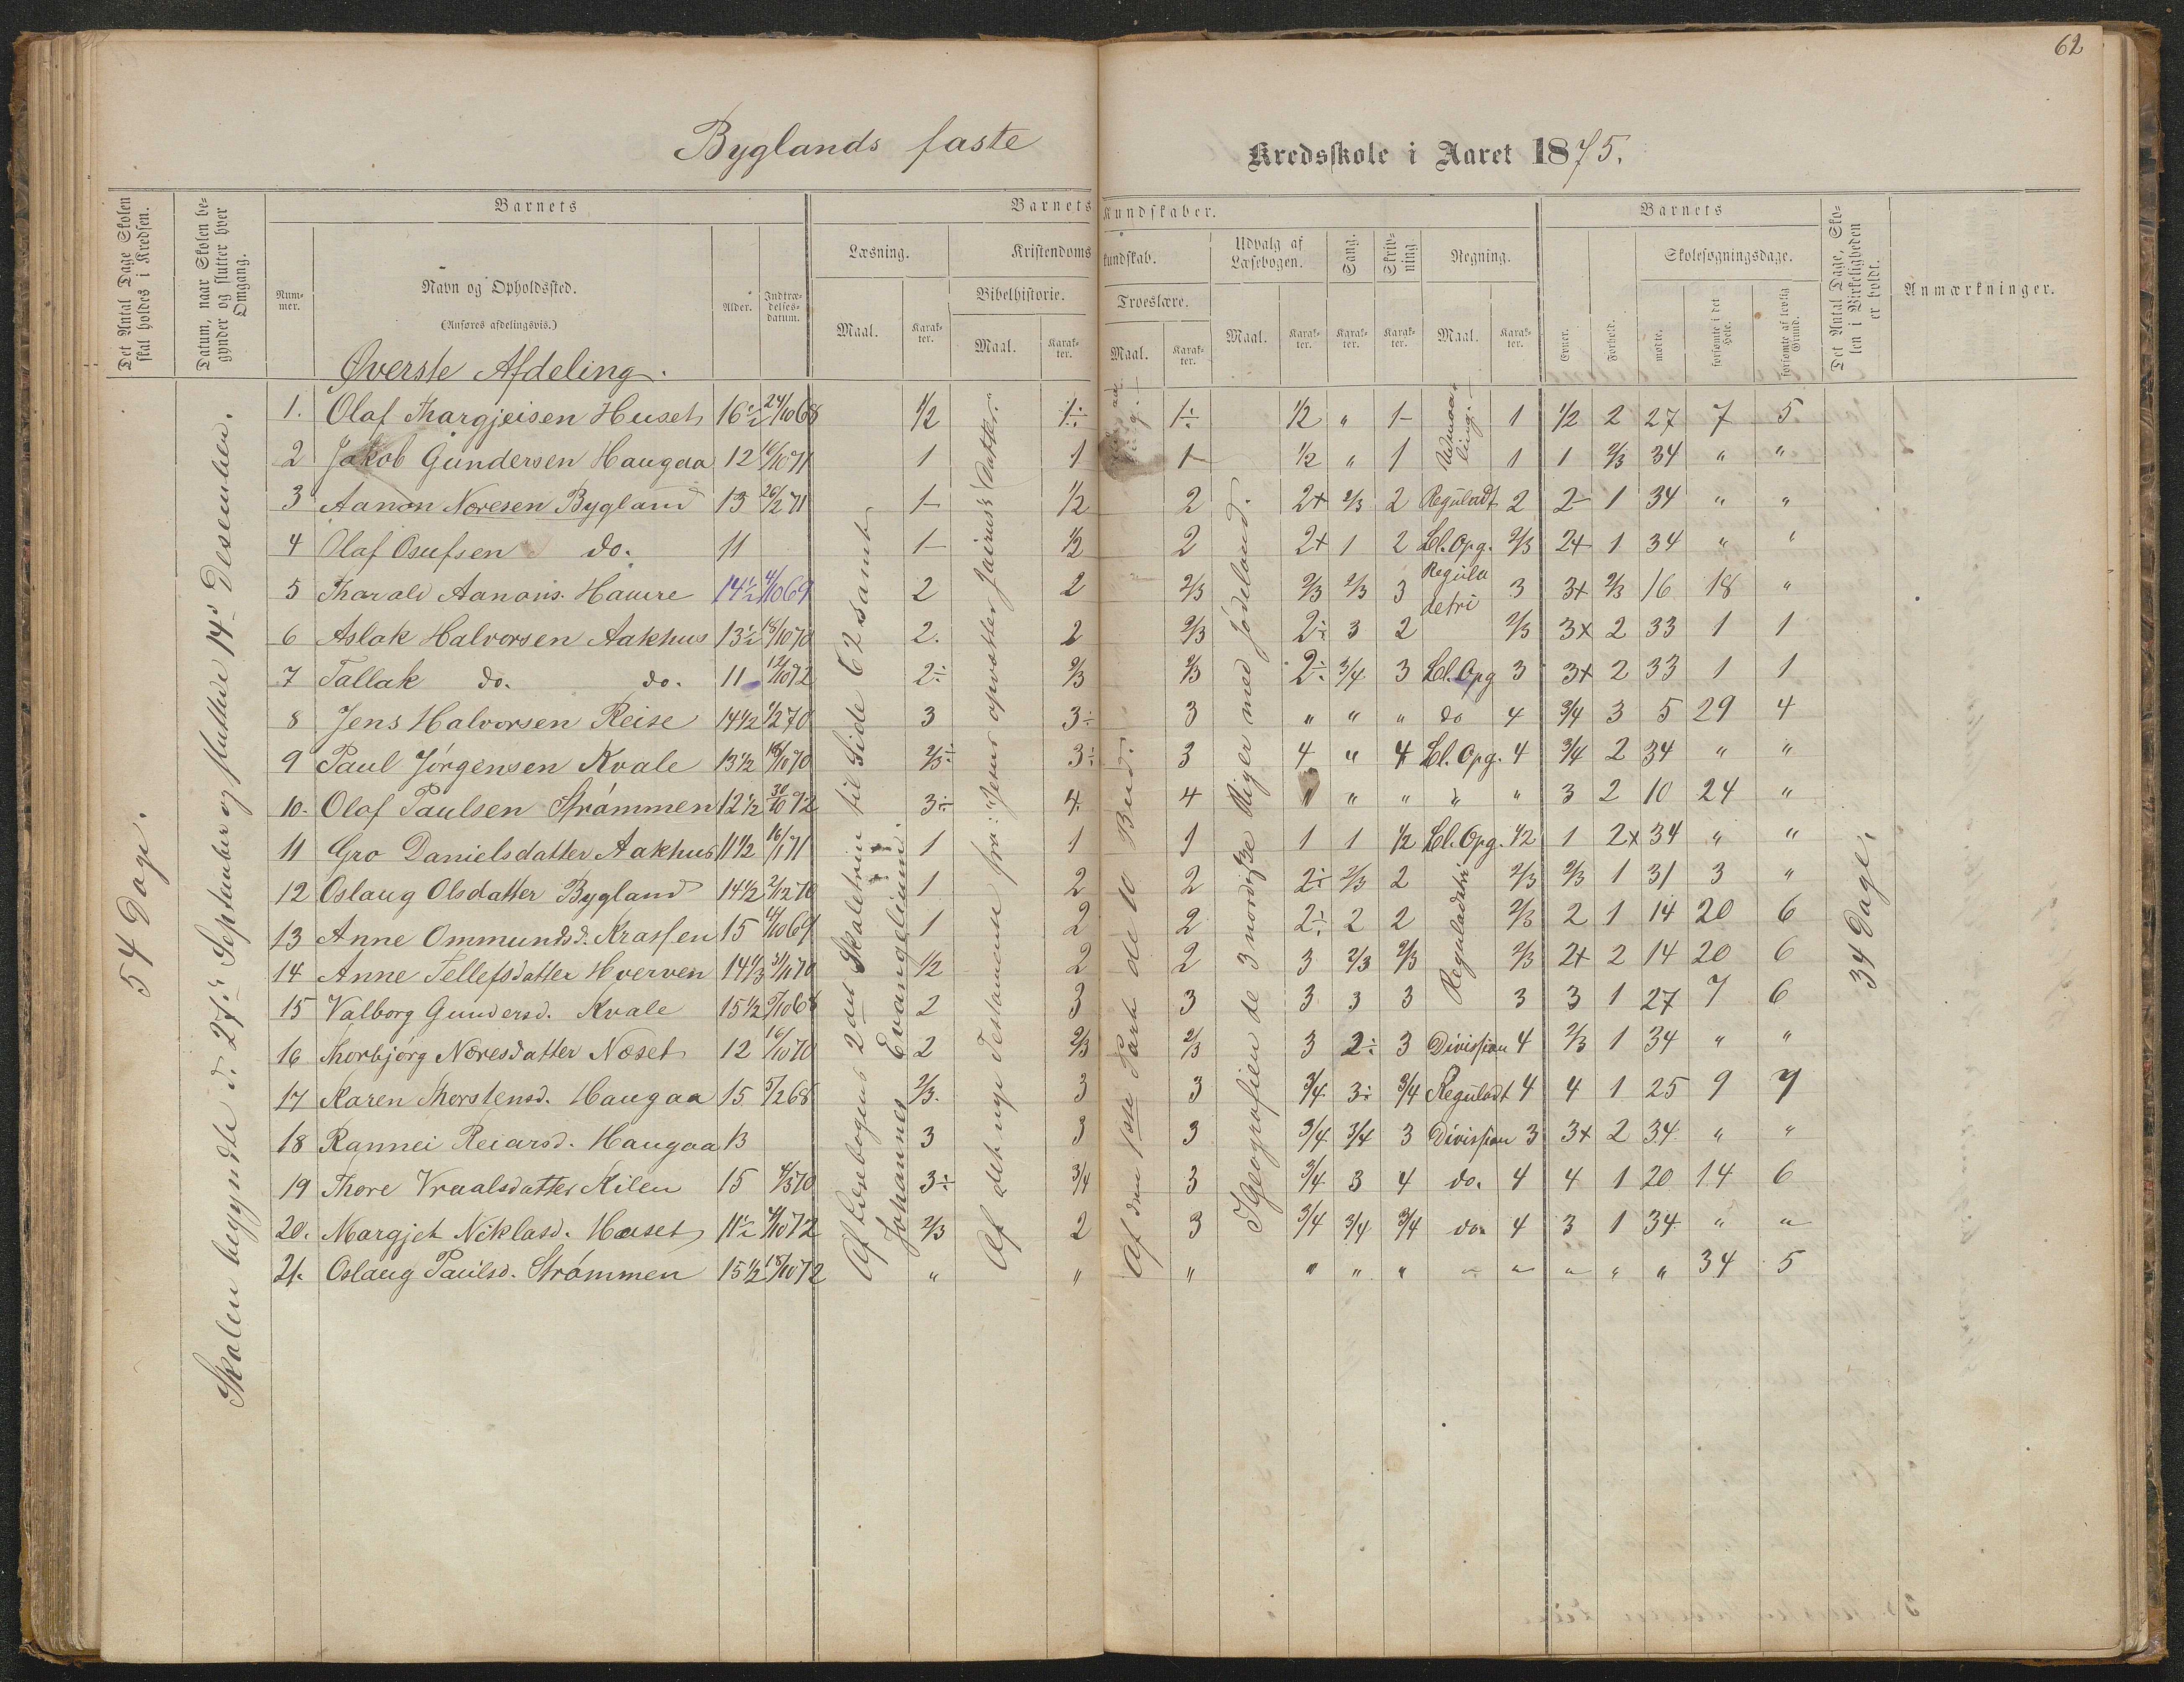 62
Byglands faste Kredsskole i Aaret 1875.
Det Antal Dage Skolen skal holdes i Kredsen.
Datum, naar Skolen begynder og slutter hver Omgang.
Barnets
Barnets Kundskaber.
Barnets
Det Antal Dage, Skolen i Virkeligheden er holdt.
Anmærkninger.
Nummer.
Navn og Opholdssted.
(Anføres afdelingsvis.)
Alder.
Indtrædelsesdatum.
Læsning.
Kristendomskundskab.
Udvalg af Læsebogen.
Sang.
Skrivning
Regning.
Skolesøgningsdage.
Bibelhistorie.
Troeslære.
Maal. Karakter. Maal. Karakter. Maal. Karakter. Maal. Karakter. Karakter. Karakter. Maal. Karakter.
Evner. Forhold. mødte. forsømte i det Hele. forsømte af lovlig Grund.
Øverste Afdeling.
54 Dage.
Skolen begyndte d. 27de September og sluttede 14de Desember.
Af Læsebogens 2det Skoletrin til Side 62 samt Johannes Evangelium.
Af det nye Testamente fra: "Jesus opvækker Jairus's Datter."
Af den 1ste Part de 10 Bud.
I Geografien de 3 nordiske Riger med Jødeland.
34 Dage.
1. Olaf Thargjeisen Huset 16½ 24/10 68 1/2 1÷ 1÷ 1/2 " 1- 1 1/2 2 27 7 5.
2 Jakob Gundersen Haugaa 12 16/10 71 1 1 1- 1/2 " 1 1 1 2/3 34 " "
3 Aanon Noresen Bygland 13 26/2 71 1- 1/2 2 2+ 2/3 2 Reguladt 2 2- 1 34 " "
4 Olaf Osufsen do. 11 1- 1/2 2 2+ 1 2 Bl. Opg. 2/3 2+ 1 34 " "
5 Tharald Aanons. Hauvre 14½ 4/10 69 2 2 2/3 2/3 2/3 3 Regula detri 3 3+ 2/3 16 18 "
6 Aslak Halvorsen Aakhus 13½ 18/10 70 2. 2 2/3 2÷ 3 2 2/3 3+ 2 33 1 1
7 Tallak do. do. 11 12/10 72 2÷ 2/3 2/3 2÷ 3/4 3 Bl. Opg 3 3+ 2 33 1 1
8 Jens Halvorsen Reise 14½ 1/2 70 3 3÷ 3 " " " do 4 3/4 3 5 29 4
9 Paul Jørgensen Kvale 13½ 18/10 70 2/3÷ 3÷ 3 4 " 4 Bl. Opg. 4 3/4 2 34 " "
10. Olaf Paulsen Strømmen 12½ 30/10 72 3÷ 4. 4 " " " " " 3 2 10 24 "
11 Gro Danielsdatter Aakhus 11½ 16/1 71 1 1 1 1 1 1/2 Bl. Opg. 1/2 1 2+ 34 " "
12 Oslaug Olsdatter Bygland 14½ 2/12 70 1 2 2 2÷ 2/3 2 2/3 2/3 1 31 3 "
13 Anne Ommundsd. Krassen 15 11/10 69 1 2 2 2÷ 2 2 Reguladetri 2/3 2 1 14 20 6
14 Anne Tellefsdatter Hverven 14 1/3 31/1 70 1/2 2 2 3 2/3 2/3 2/3 2+ 2 14 20 6
15 Valborg Gundersd. Kvale 15½ 5/10 68 2 3 3 3 3 3 3 3 1 27 7 6
16 Thorbjørg Noresdatter Næset 12 16/10 70 2 2/3 2/3 3 2÷ 3 Division 4 2/3 1 34 " "
17 Karen Thorstensd. Haugaa 15 5/2 68 2/3. 3 3 3/4 3÷ 3/4 Reguladt 4 4 1 25 9 7
18 Rannei Reiarsd. Haugaa 13 3 3 3 3/4 3/4 3 Division 3 3+ 2 34 " "
19 Thore Vraalsdatter Kilen 15 4/3 70 3÷ 3/4 3 3/4 3 4 do. 4 4 1 20 14 6
20. Margjet Niklasd. Huset 11½ 4/10 72 2/3 2 3 3/4 3/4 3/4 do. 4 3 1 34 " "
21. Oslaug Paulsd. Strømmen 15½ 18/10 72 " " " " " " " " " " " 34 5